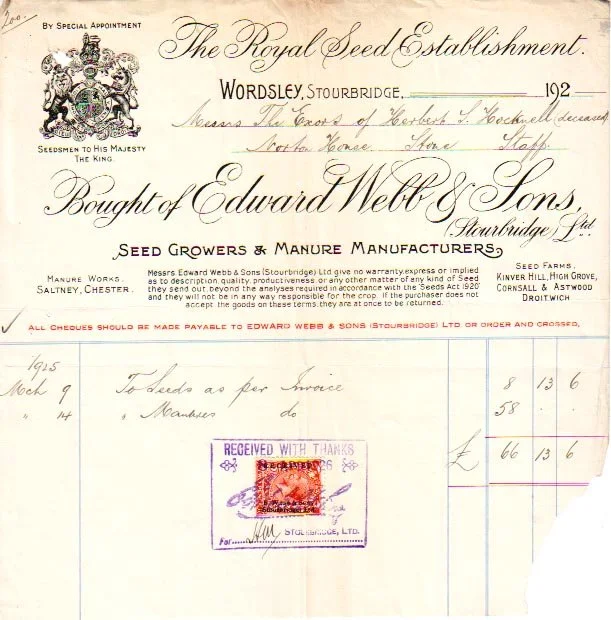 200.
BY SPECIAL APPOINTMENT
SEEDSMEN TO HIS MAJESTY
THE KING.
The Royal Seed Establishment.
WORDSLEY, STOURBRIDGE, 192
Messrs The Exors of Herbert S. Hocknell (deceased)
Norton House. Stone Staff
Bought of Edward Webb & Sons,
(Stourbridge) Ltd
SEED GROWERS & MANURE MANUFACTURERS,
MANURE WORKS.
SALTNEY, CHESTER.
Messrs. Edward Webb & Sons (Stourbridge) Ltd give no warranty, express or implied
as to description, quality, productiveness or any other matter of any kind of Seed
they send out, beyond the analyses required in accordance with the 'Seeds Act 1920'
and they will not be in any way responsible for the crop. If the purchaser does not
accept the goods on these terms, they are at once to be returned.
SEED FARMS.
KINVER HILL, HIGH GROVE,
CORNSALL & ASTWOOD
DROITWICH
ALL CHEQUES SHOULD BE MADE PAYABLE TO EDWARD WEBB & SONS (STOURBRIDGE) LTD OR ORDER AND CROSSED.
1925
Mch 9 To Seeds as per Invoice 8 13 6
" 14 " Manures do 58 . .
£ 66 13 6
RECEIVED WITH THANKS
26
For STOURBRIDGE, LTD.